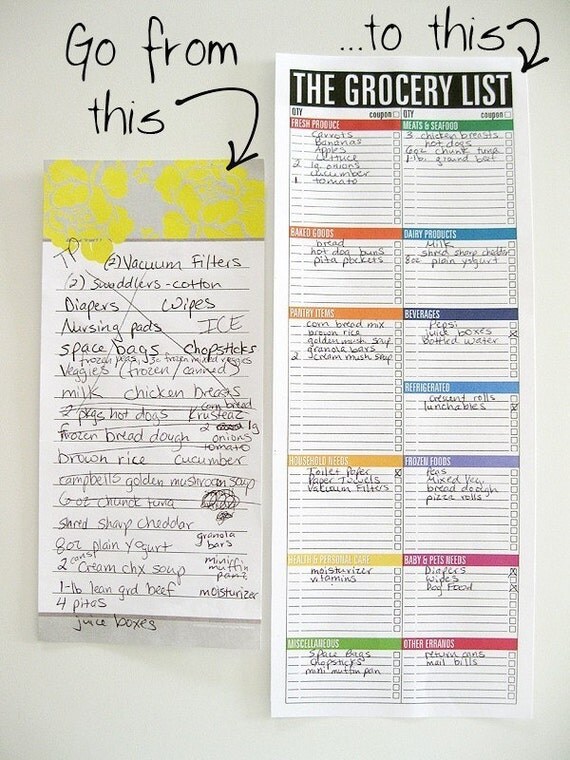 Go from
this
...to this
TP (2) Vacuum Filters
(2) Swaddlers - cotton
Diapers Wipes
Nursing pads ICE
space bags chopsticks
frozen peas, frozen mixed veggies
veggies (frozen / canned)
milk chicken breasts
corn bread
2 pkgs hot dogs Krusteaz
2 lg
frozen bread dough onions
tomato
brown rice cucumber
campbells golden mushroom soup
6oz chunck tuna
shred sharp cheddar
granola
8oz plain yogurt bars
cans
2 cream chx soup
mini
muffin
panz
1-lb lean grd beef moisturizer
4 pitas
juice boxes
THE GROCERY LIST
QTY coupon QTY coupon
FRESH PRODUCE
carrots
Bananas
Apples
Lettuce
2 lg. onions
cucumber
1 tomato
MEATS & SEAFOOD
3 chicken breasts
hot dogs
6oz chunk tuna
1-lb. ground beef
BAKED GOODS
bread
hot dog buns
pita pockets
DAIRY PRODUCTS
Milk
shred sharp cheddar
8oz plain yogurt
PANTRY ITEMS
corn bread mix
brown rice
golden mush soup
granola bars
2 cream mush soup
BEVERAGES
Pepsi
juice boxes X
bottled water
REFRIGERATED
crescent rolls
lunchables X
HOUSEHOLD NEEDS
Toilet Paper X
Paper Towels
Vacuum Filters
FROZEN FOODS
Peas
Mixed Veg
bread doough
pizza rolls
HEALTH & PERSONAL CARE
moisturizer
vitamins
BABY & PETS NEEDS
Diapers X
Wipes
Dog Food X
MISCELLANEOUS
Space Bags
Chopsticks
mini muffin pan
OTHER ERRANDS
return cans
mail bills